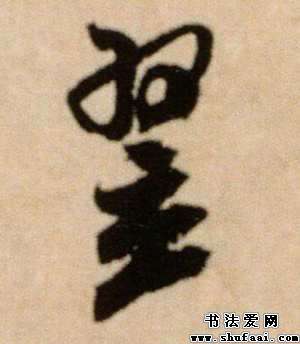 翌
书法爱网
www.shufaai.com